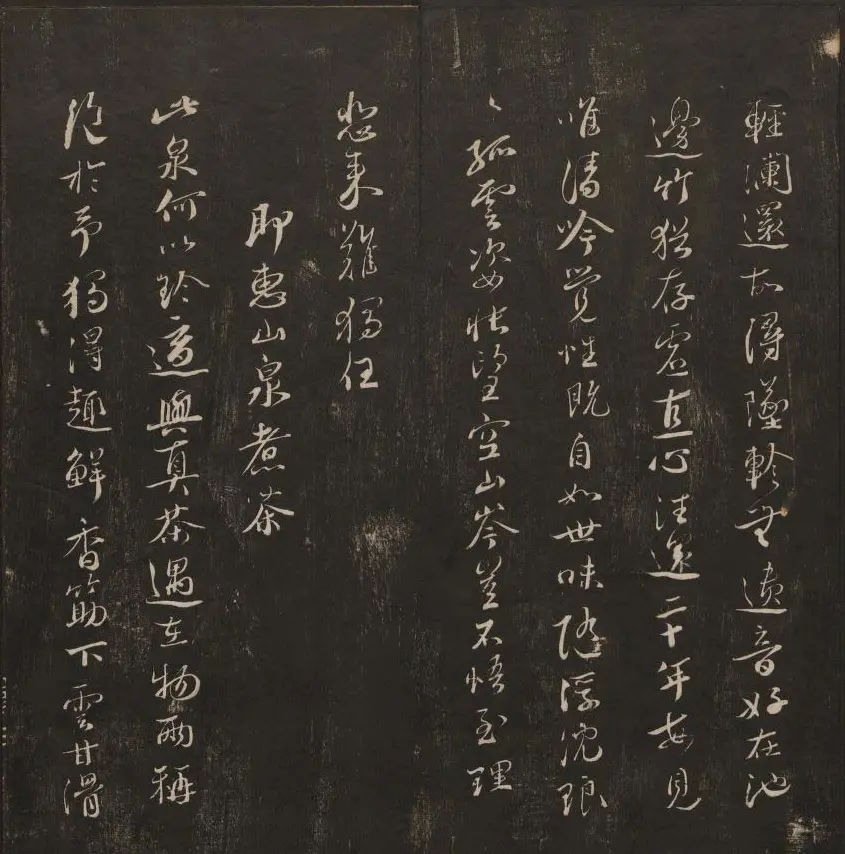 輕瀾還故潯墜軫無遺音好在池
邊竹猶存虛直心往還二十年每見
唯清吟覺性既自如世味隨浮沈琅
〻孤雲姿悵望空山岑豈不悟至理
悲來難獨任
即惠山泉煮茶
此泉何以珍適與真茶遇在物兩稱
絕於予獨得趣鮮香筯下雲甘滑